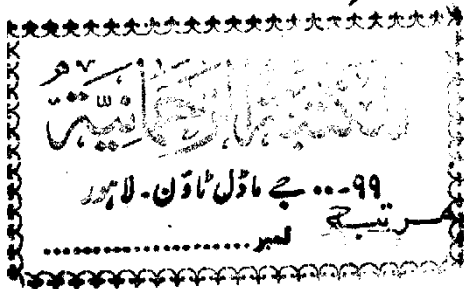 المكتبة الرحمانية
۹۹--۰۰ جے ماڈل ٹاؤن - لاہور
مرتبہ
نمبر......................